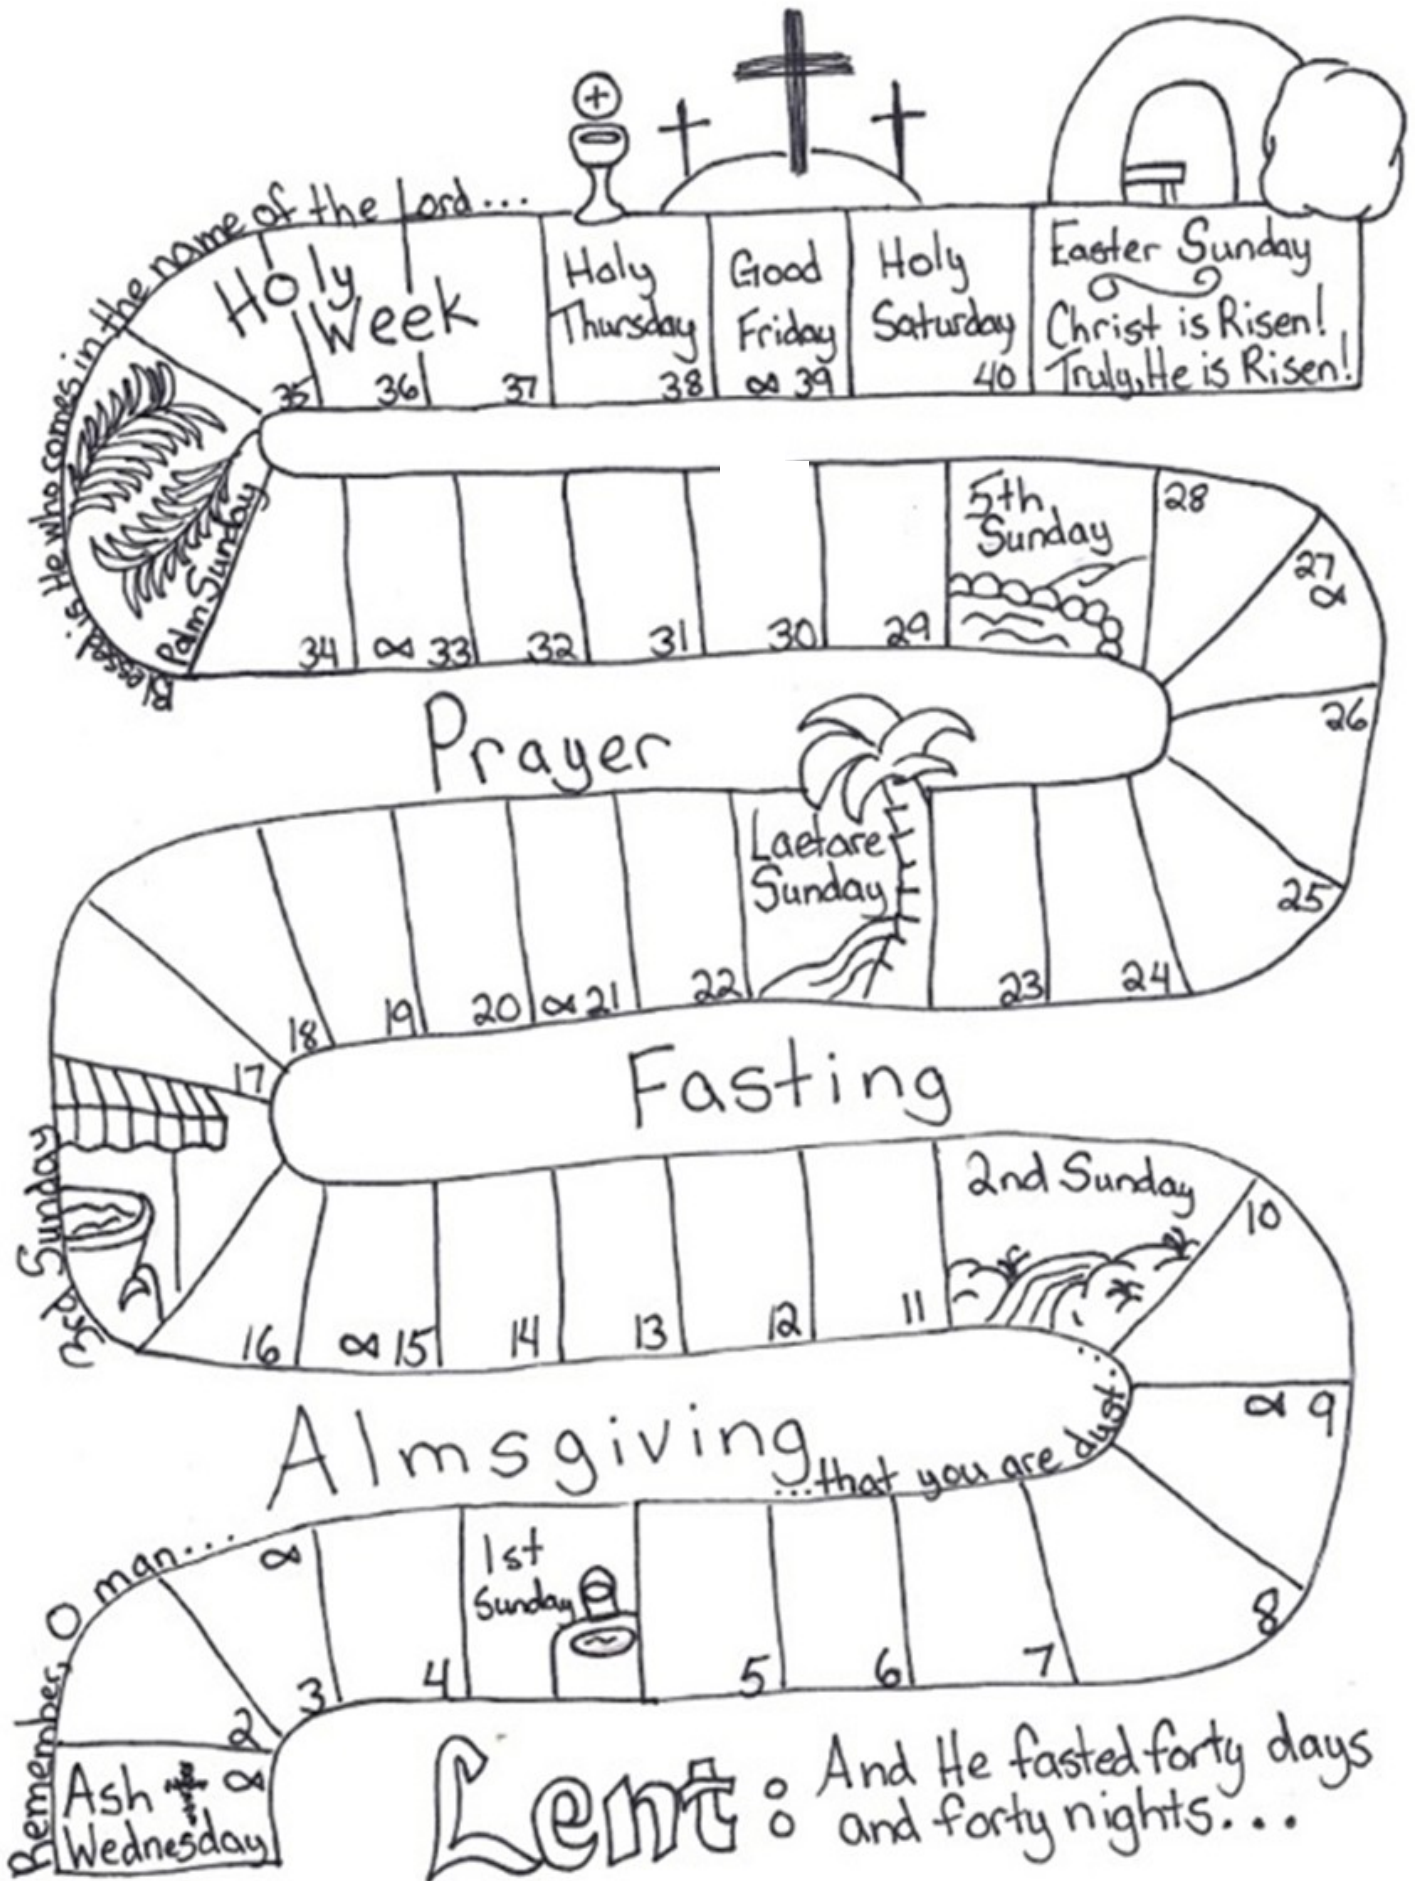 Blessed is He who comes in the name of the Lord...
Holy
Week
35
36
37
Holy
Thursday
38
Good
Friday
39
Holy
Saturday
40
Easter Sunday
Christ is Risen!
Truly, He is Risen!
Palm Sunday
34
33
32
31
30
29
5th
Sunday
28
27
26
25
Prayer
24
23
Laetare
Sunday
22
21
20
19
18
17
Fasting
3rd Sunday
16
15
14
13
12
11
2nd Sunday
10
9
8
Almsgiving
...that you are dust...
7
6
5
1st
Sunday
4
3
2
Remember, O man...
Ash
Wednesday
Lent:
And He fasted forty days
and forty nights...